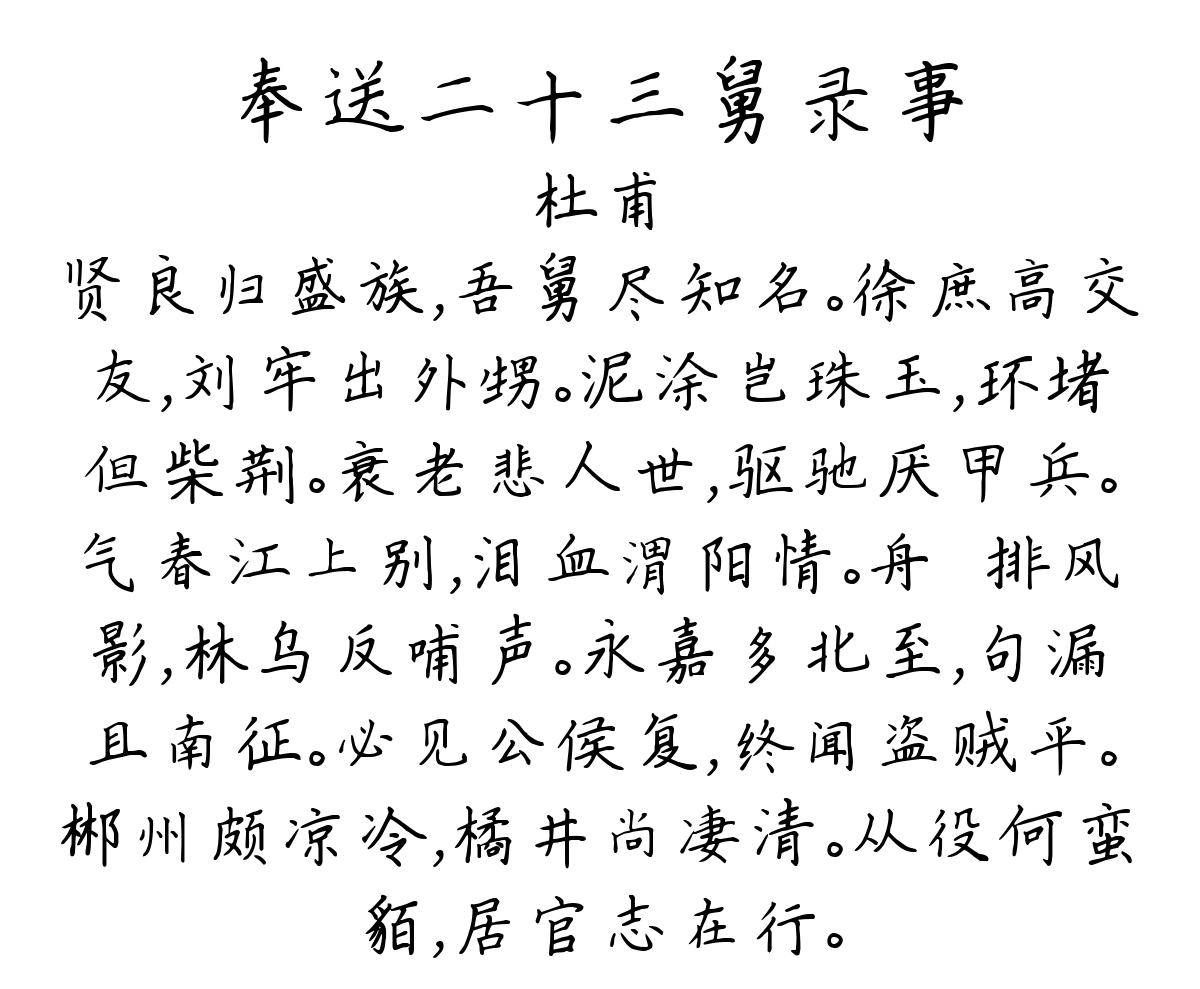 奉送二十三舅录事
杜甫
贤良归盛族,吾舅尽知名。徐庶高交
友,刘牢出外甥。泥涂岂珠玉,环堵
但柴荆。衰老悲人世,驱驰厌甲兵。
气春江上别,泪血渭阳情。舟 排风
影,林乌反哺声。永嘉多北至,句漏
且南征。必见公侯复,终闻盗贼平。
郴州颇凉冷,橘井尚凄清。从役何蛮
貊,居官志在行。